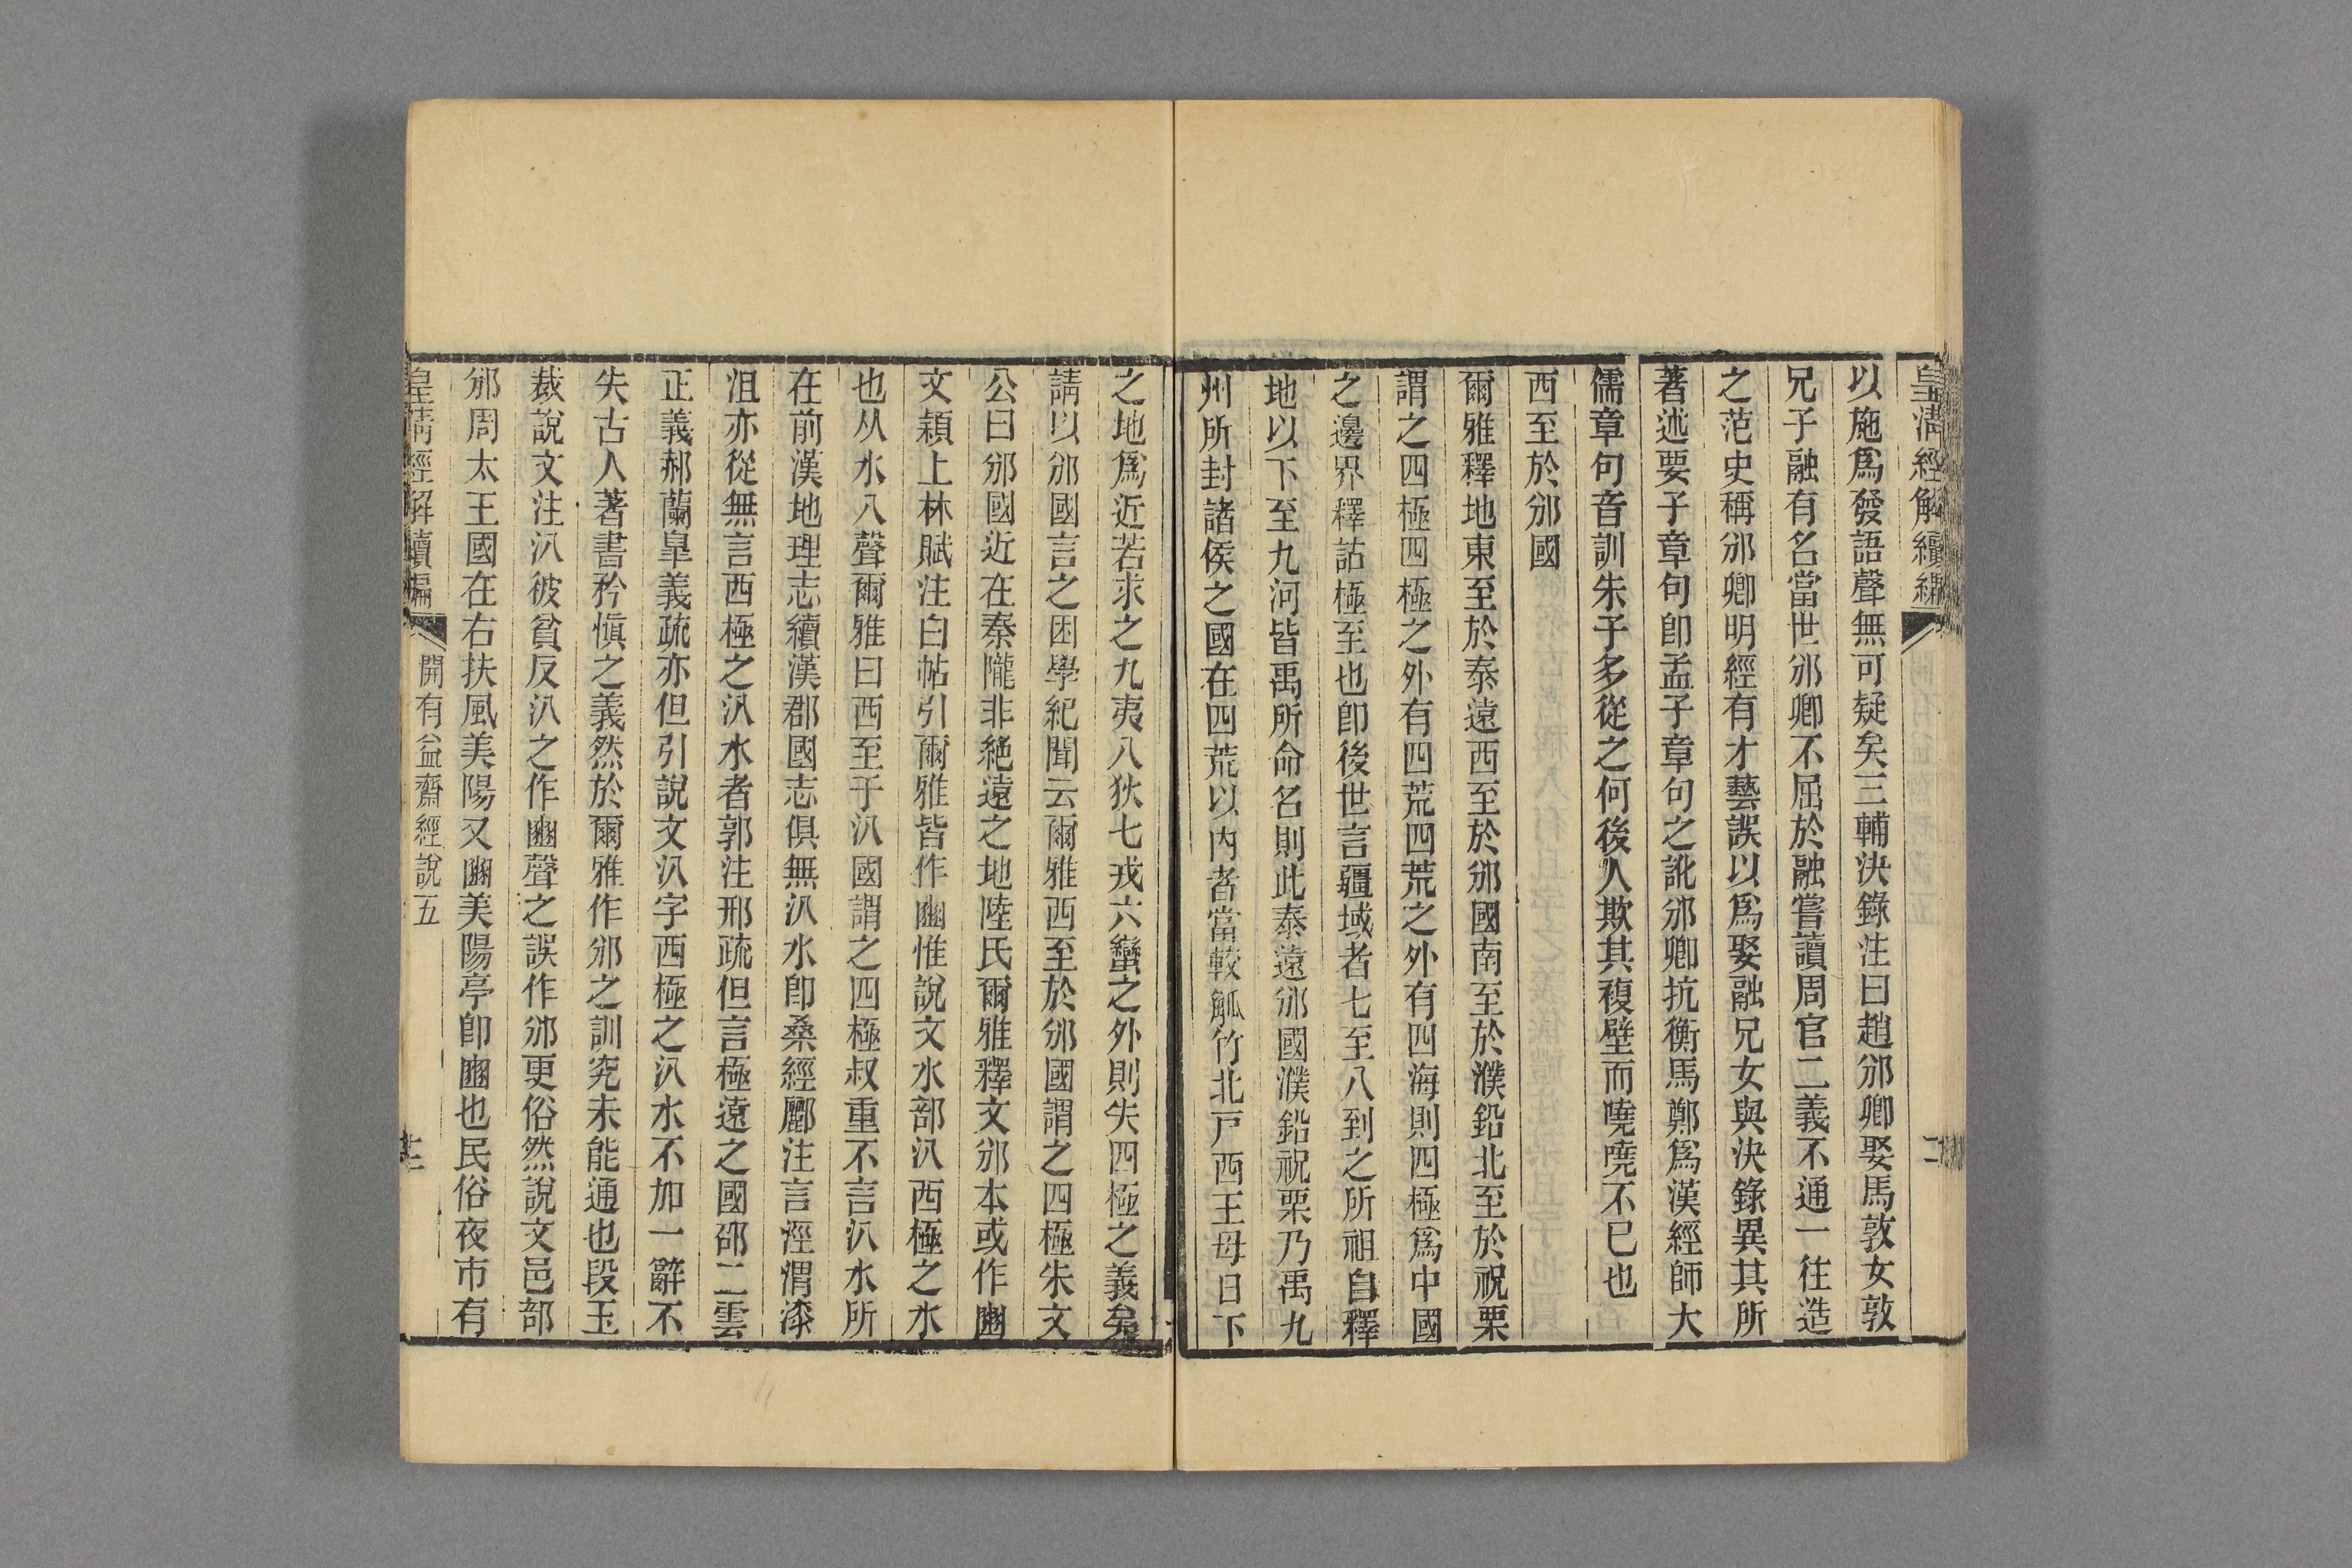 皇清經解續編
二
以施爲發語聲無可疑矣三輔決錄注曰趙邠卿娶馬敦女敦
兄子融有名當世邠卿不屈於融嘗讀周官二義不通一往造
之范史稱邠卿明經有才藝誤以爲娶融兄女與決錄異其所
著述要子章句卽孟子章句之訛邠卿抗衡馬鄭爲漢經師大
儒章句音訓朱子多從之何後人欺其複壁而嘵嘵不巳也
西至於邠國
爾雅釋地東至於泰遠西至於邠國南至於濮鉛北至於祝栗
謂之四極四極之外有四荒四荒之外有四海則四極爲中國
之邊界釋詁極至也卽後世言疆域者七至八到之所祖自釋
地以下至九河皆禹所命名則此泰遠邠國濮鉛祝栗乃禹九
州所封諸侯之國在四荒以內者當較觚竹北戸西王母日下
之地爲近若求之九夷八狄七戎六蠻之外則失四極之義矣
請以邠國言之困學紀聞云爾雅西至於邠國謂之四極朱文
公曰邠國近在秦隴非絶遠之地陸氏爾雅釋文邠本或作豳
文穎上林賦注白帖引爾雅皆作豳惟說文水部汃西極之水
也从水八聲爾雅曰西至于汃國謂之四極叔重不言汃水所
在前漢地理志續漢郡國志俱無汃水卽桑經酈注言涇渭漆
沮亦從無言西極之汃水者郭注邢疏但言極遠之國邵二雲
正義郝蘭皐義疏亦但引說文汃字西極之汃水不加一辭不
失古人著書矜愼之義然於爾雅作邠之訓究未能通也段玉
裁說文注汃彼貧反汃之作豳聲之誤作邠更俗然說文邑部
邠周太王國在右扶風美陽又豳美陽亭卽豳也民俗夜市有
皇清經解續編
開有益齋經說五